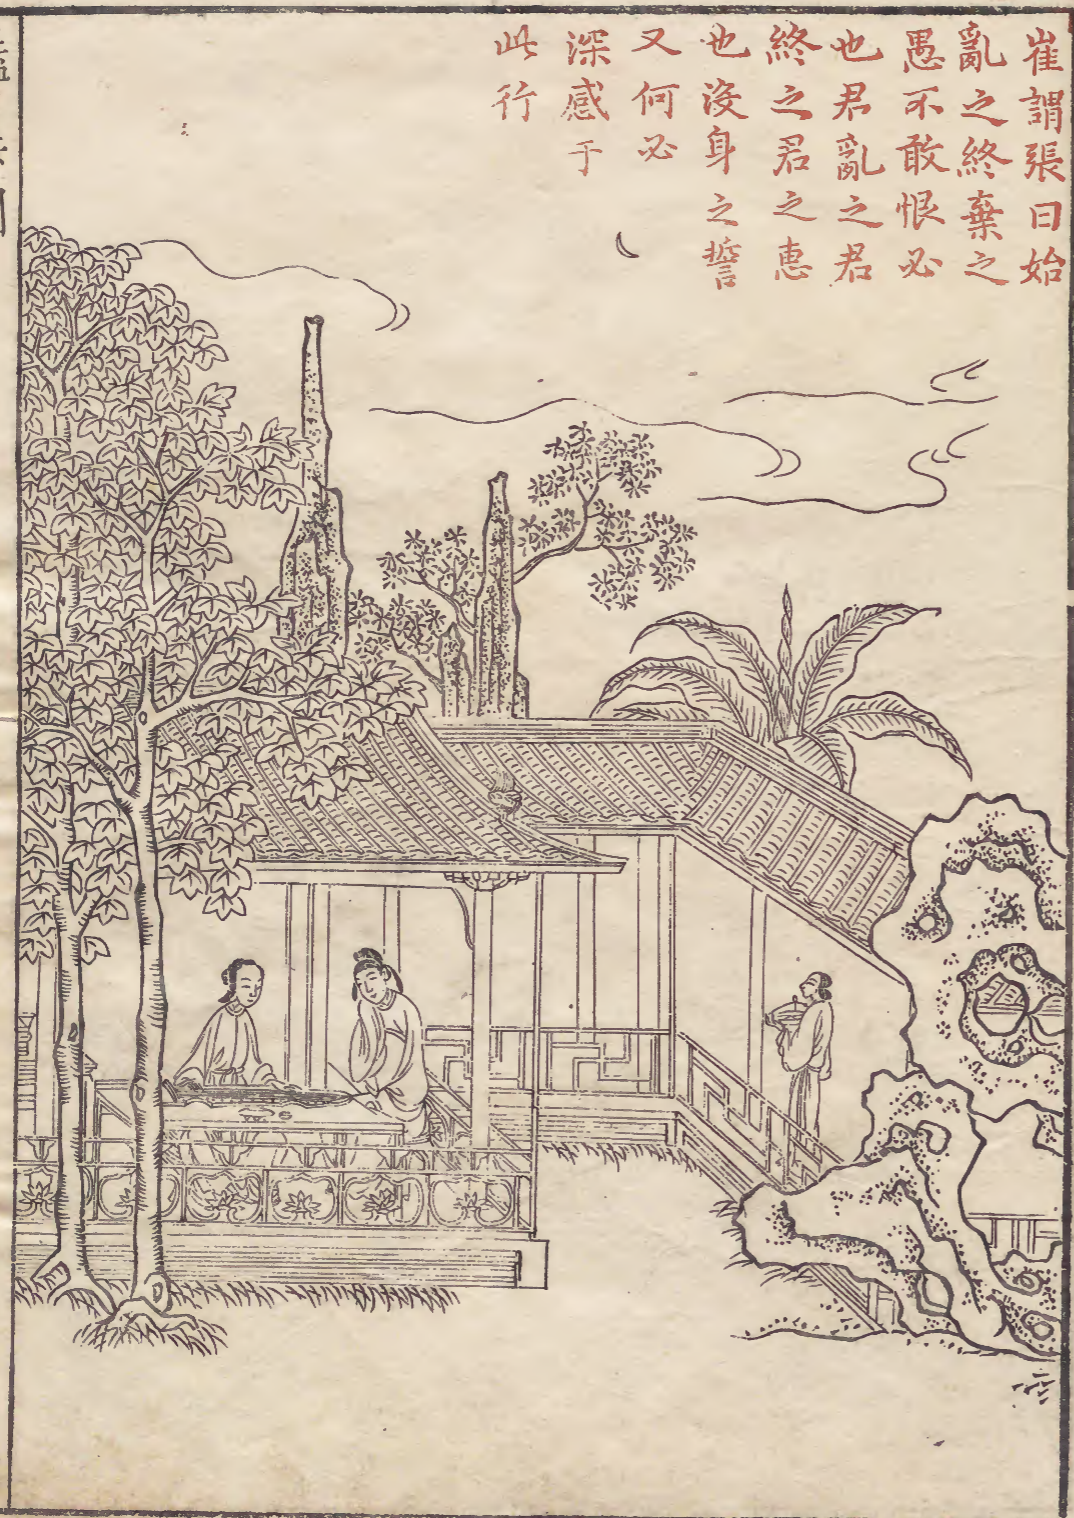 崔謂張曰始
亂之終棄之
愚不敢恨必
也君亂之君
終之君之恵
也沒身之誓
又何必
深感于
此行